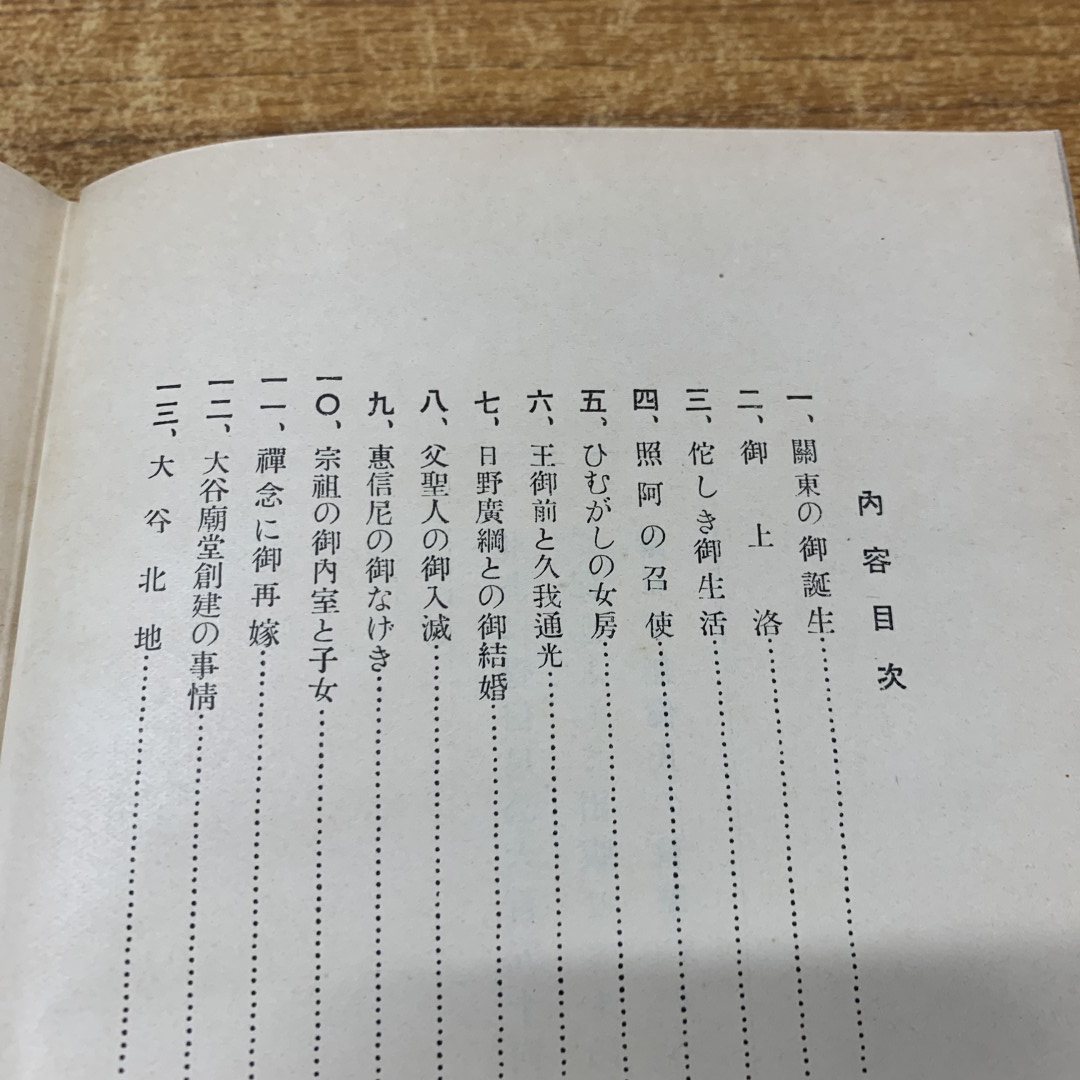 內容目次
一、關東の御誕生
二、御上洛
三、侘しき御生活
四、照阿の召使
五、ひむがしの女房
六、王御前と久我通光
七、日野廣綱との御結婚
八、父聖人の御入滅
九、惠信尼の御なげき
一〇、宗祖の御內室と子女
一一、禪念に御再嫁
一二、大谷廟堂創建の事情
一三、大谷北地